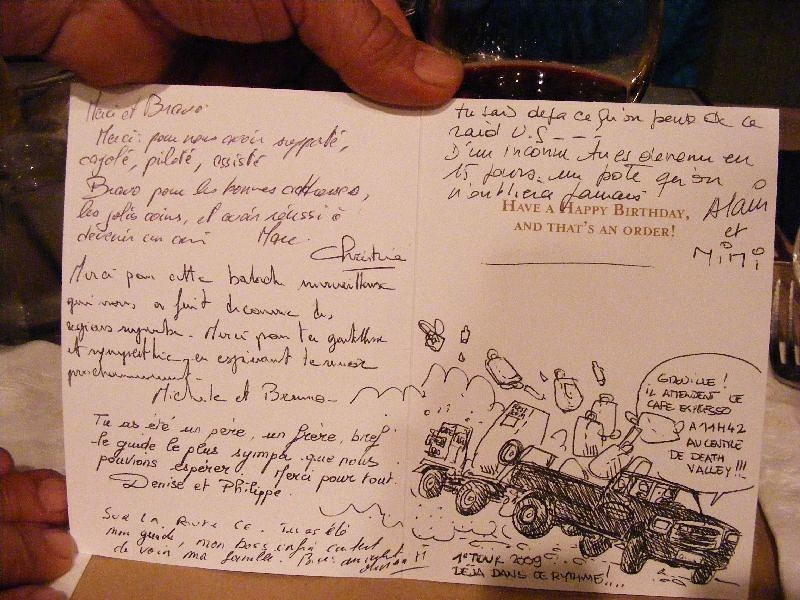 Merci et Bravo.
Merci: pour nous avoir supporté,
coyoté, piloté, assisté
Bravo pour les bonnes adresses,
les jolis coins, et avoir réussi à
devenir un ami Marc
Christine
Merci pour cette balade merveilleuse
qui nous a fait découvrir des
régions superbes. Merci pour ta gentillesse
et sympathie en espérant te revoir
prochainement
Michèle et Bruno
Tu as été un père, un frère, bref
le guide le plus sympa que nous
pouvions espérer Merci pour tout.
Denise et Philippe.
Sur la Route Tu as été
mon guide, mon boss enfin
de voir ma famille.
tu sais deja ce qu'on pense de ce
raid U.S ----
D'un inconnu tu es devenu en
15 jours un pote qu'on
n'oubliera jamais
Alain
et
MiMi
HAVE A HAPPY BIRTHDAY,
AND THAT'S AN ORDER!
GROUILLE !
IL ATTENDENT CE
CAFE EXPRESSO
A 11H42
AU CENTRE
DE DEATH
VALLEY !!!
1° TOUR 2009
DÉJA DANS CE RYTHME!...